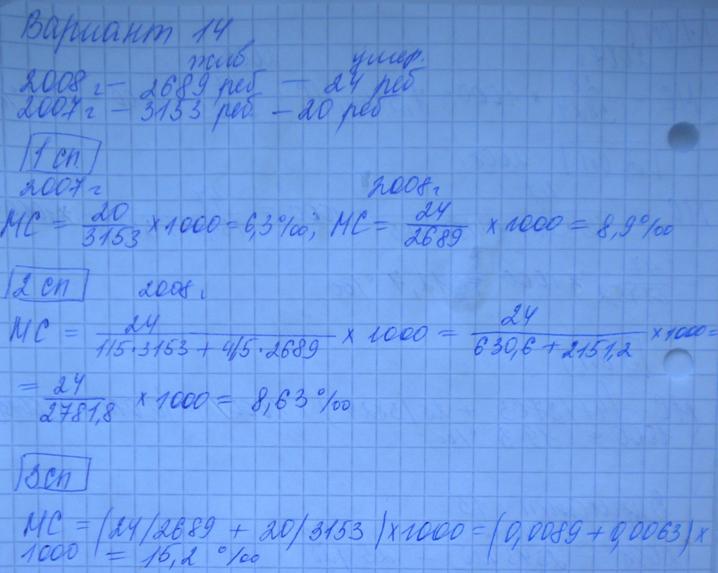 Вариант 14
жив. умер.
2008 г – 2689 реб – 24 реб
2007 г – 3153 реб – 20 реб
1 сп
2007 г 2008 г
МС = 20/3153 × 1000 = 6,3‰; МС = 24/2689 × 1000 = 8,9‰
2 сп 2008 г
МС = 24/(1/5·3153 + 4/5·2689) × 1000 = 24/(630,6 + 2151,2) × 1000 =
= 24/2781,8 × 1000 = 8,63‰
3 сп
МС = (24/2689 + 20/3153) × 1000 = (0,0089 + 0,0063) ×
1000 = 15,2 ‰